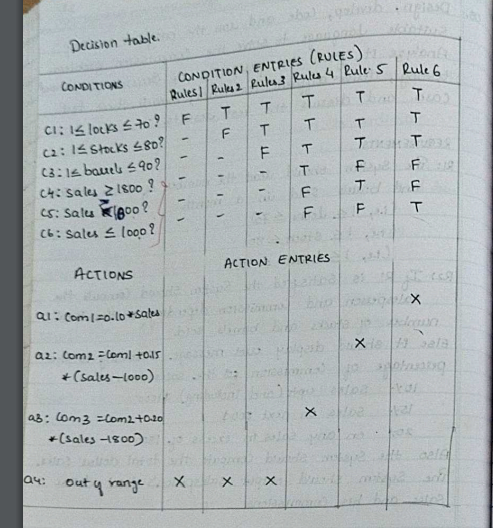 Decision table.
CONDITIONS CONDITION ENTRIES (RULES)
Rules1 Rules2 Rules3 Rules 4 Rule 5 Rule 6
C1: 1≤ locks ≤ 70? F T T T T T
C2: 1≤ stocks ≤80? - F T T T T
C3: 1≤ barrels ≤90? - - F T T T
C4: sales ≥ 1800? - - - T F F
C5: sales 1800? - - - F T F
C6: sales ≤ 1000? - - - F F T
ACTIONS ACTION ENTRIES
a1: Com1=0.10*sales X
a2: Com2 = Com1 +0.15 X
*(sales-1000)
a3: Com3 =Com2+0.20 X
*(sales -1800)
a4: out of range X X X